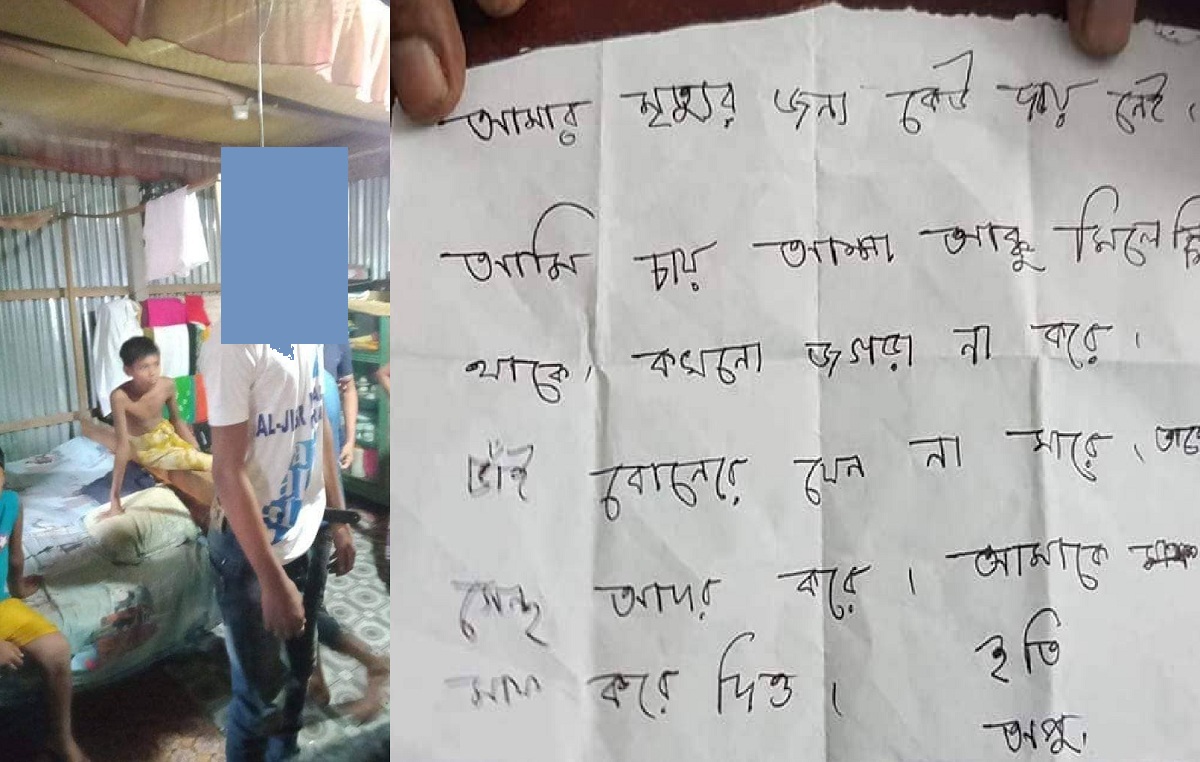 AL-JI
আমার মৃত্যুর জন্য কেউ দায় নেই।
আমি চায় আম্মা আব্বু মিলে মি
থাকে, কখনো জগড়া না করে।
ভাই বোনেরে যেন না মারে,
স্নেহ আদর করে। আমাকে
মাপ করে দিও।
ইতি
অপু